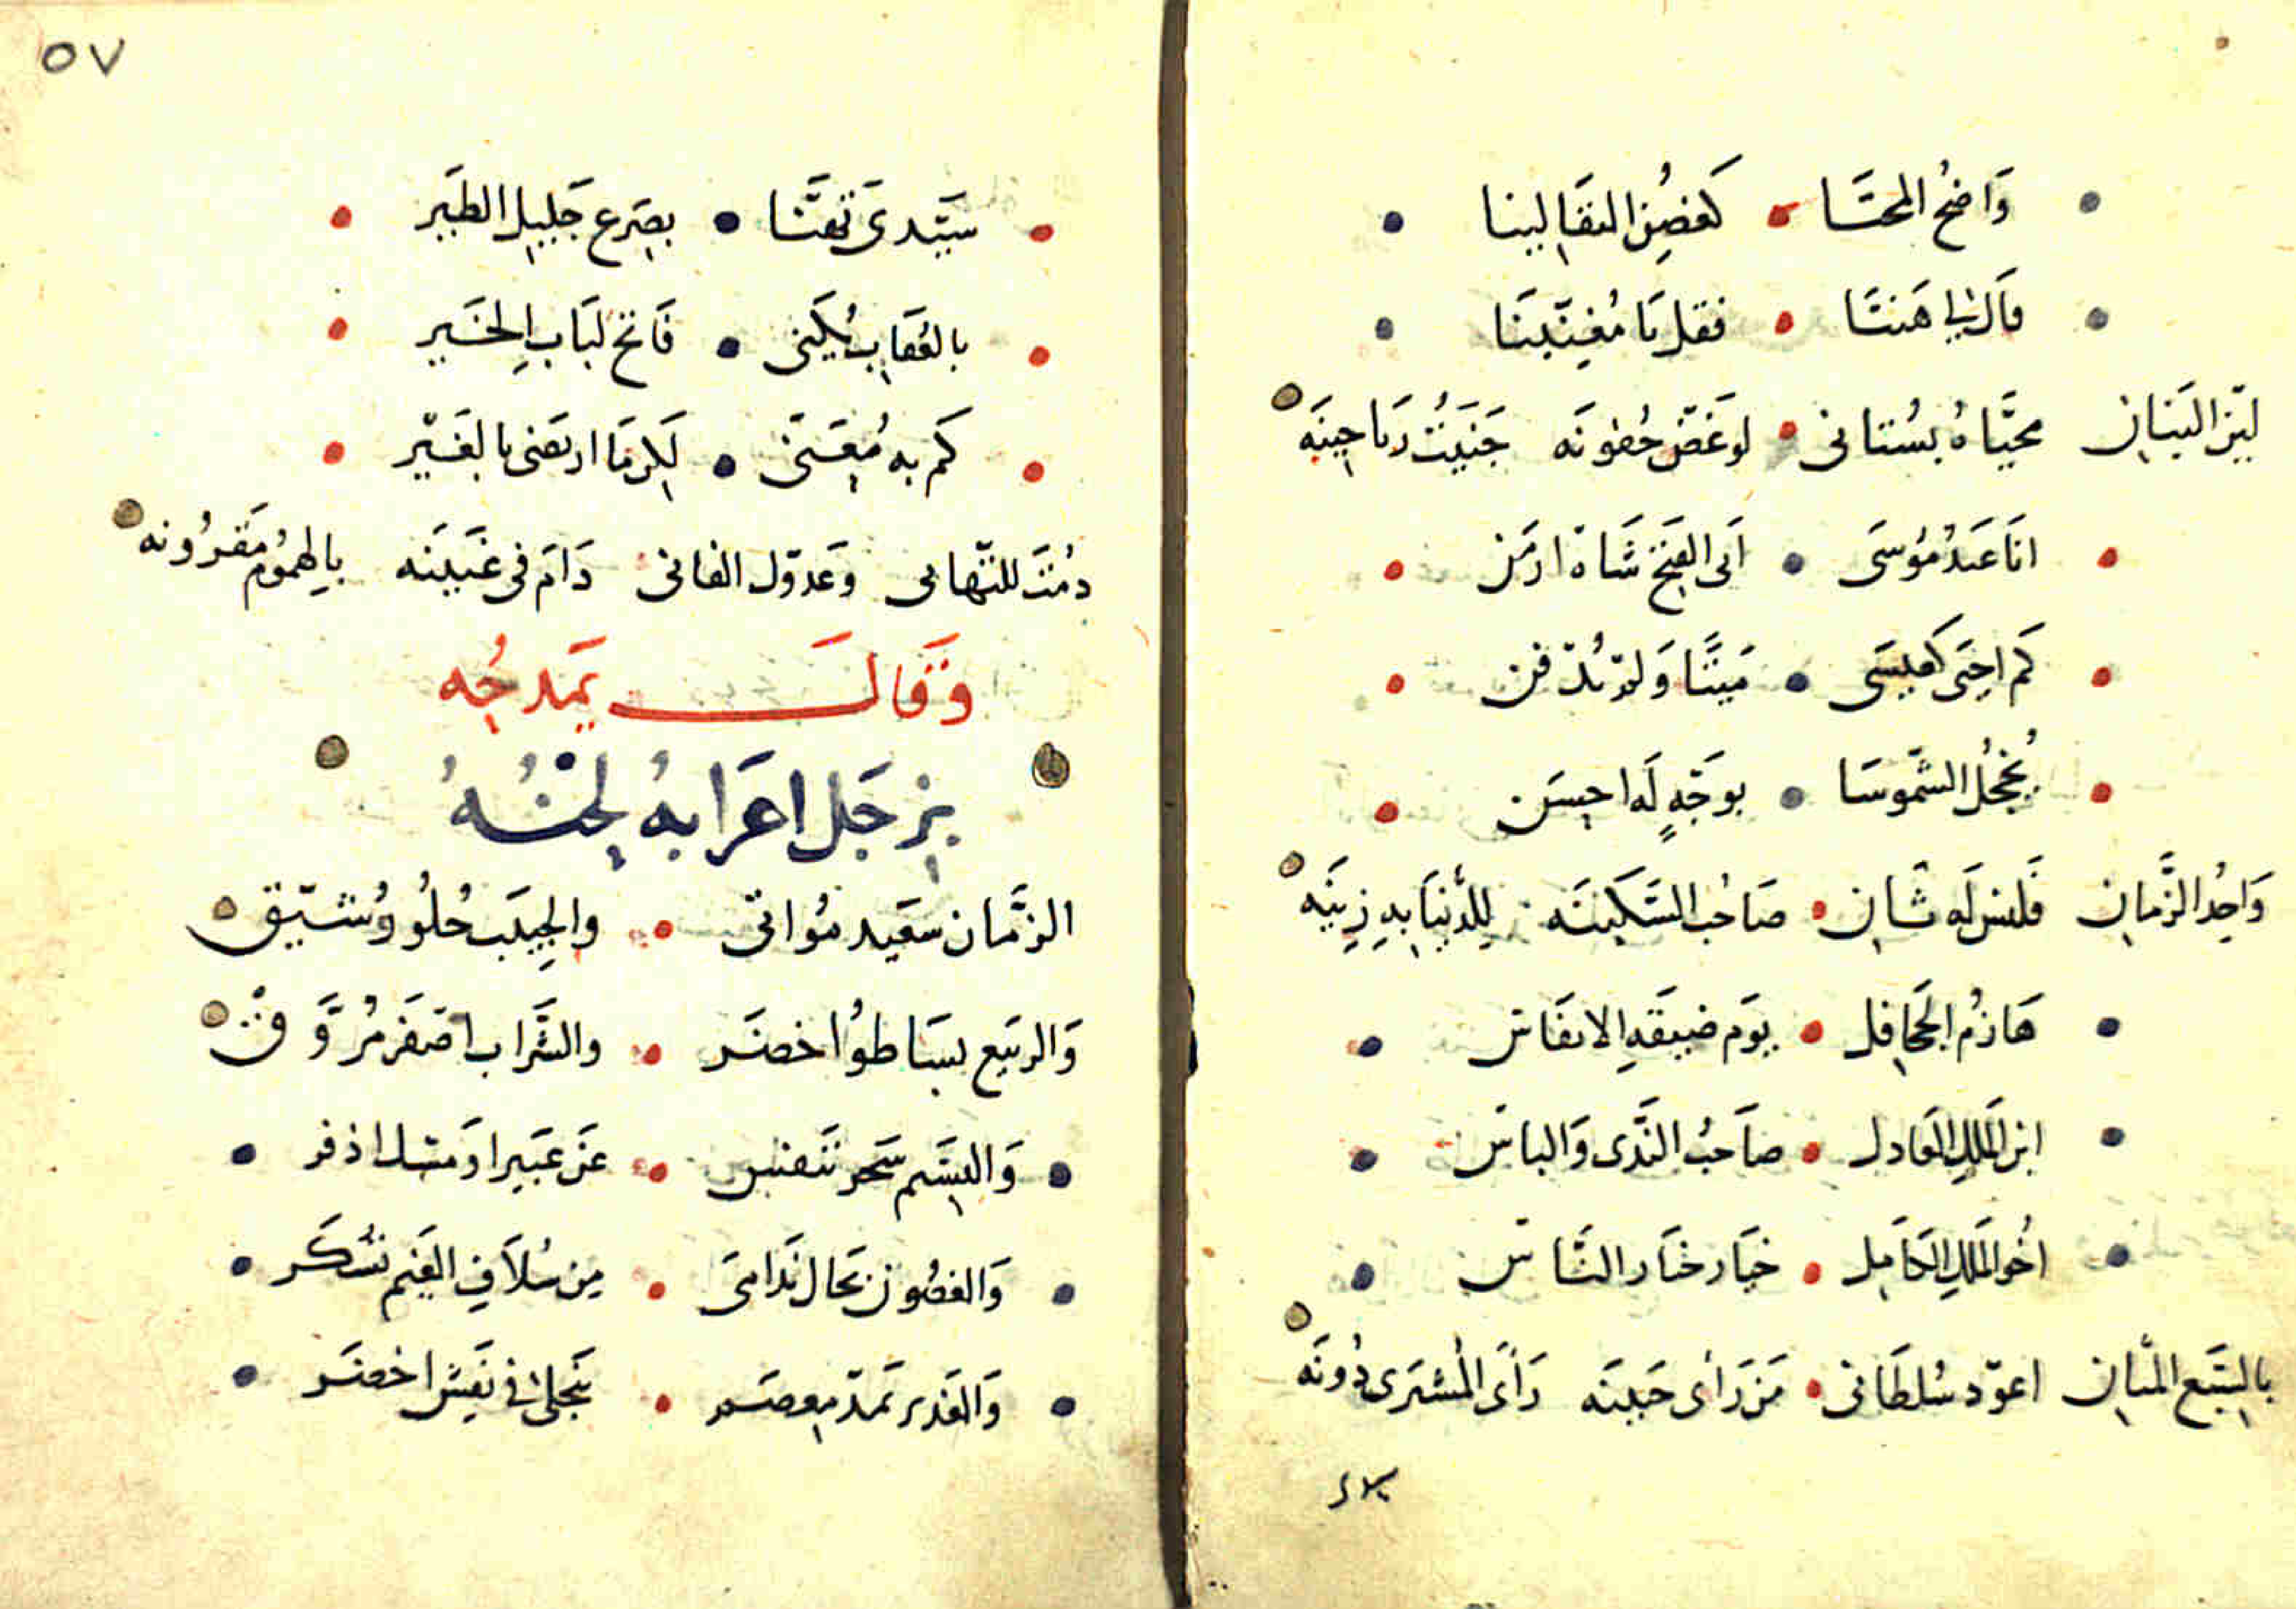 وَاضِحُ المحيَّا • كغصْنِ النقَا لينا
مَال لي هَنتَا • فقل يَا مُغنّينَا
ليّن البَنانِ محيَّاهُ بسْتانى • لو غَضّ جُفونَه جَنيَتُ ريَاحِينَه
انَا عَبدُ مُوسَى • ابى الفَتح شَاه ارمَن
كم احيَى كعيسَى • مَيتًا وَلم يُدْفن
يُخْجلُ الشّموسَا • بوَجْهٍ لَه احسَن
وَاحِدُ الزَّمانِ فَليسَ لَه ثَانِ • صَاحُب السَّكينَه للدُّنيَا بهِ زِينَه
هَازمُ الجَحافِل • يوَم ضيقَةِ الانفَاسْ
ابن الملكِ العَادل • صَاحبُ النَّدى وَالباسْ
اخُو الملَكِ الكَامِل • خيَار خيَار النَّاسْ
بالسَّبَع المثَانِ اعوّد سُلطَانى • مَن رَأى جَبينَه رَأىَ المُشترَى دُونَه
٥٧
سيّدى تَهنَّا • بصَرع جَليلِ الطَيَر
بالعُقَابِ يُكَنى • فَاتح لبَابِ الخَير
كم به مُعَنَّى • لكن مَا ارتضى بالغَيْر
دُمتَ للتّهانى وَعدوّك الفانى دَامَ فى غَبينَه بالهمُومْ مَقرُونه
وَقَالَ يَمدحُه
بزجَل اعرَابهُ لحْنُهُ
الزَّمان سَعَيد مُواتى • والحِبيَب حُلُو وُرشَيّق
وَالربَيع بسَاطوُ اخضَر • والشَّراب اصَفَر مُرَوَّقْ
وَالنسَيم سَحَر تَنفس • عَن عَبَير اوَ مسك اذفر
وَالغصُون بحَال نَدامىَ • مِن سُلاَفِ الغَيم تسْكَر
وَالغَدير يَمدّ معصَم • ينَجلى فى نقَشْ اخضَر